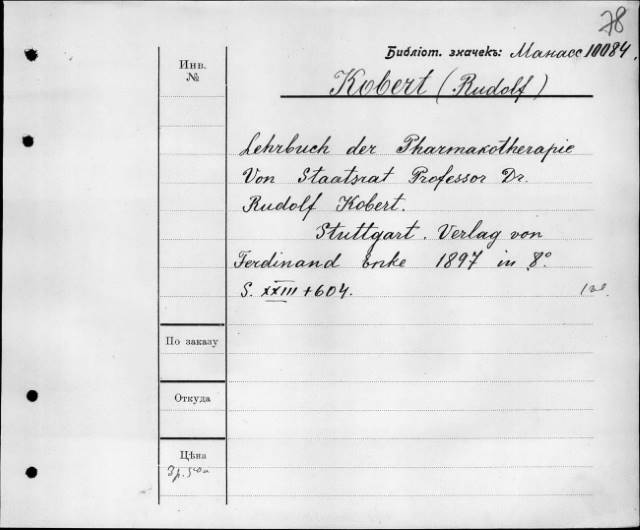 78
Библіот. значекъ: Манасс 10084.
Инв. №
Kobert (Rudolf)
Lehrbuch der Pharmakotherapie
Von Staatsrat Professor Dr.
Rudolf Kobert.
Stuttgart. Verlag von
Ferdinand Enke 1897 in 8°.
S. XXIII + 604.
По заказу
Откуда
Цѣна
3 р. 50 к